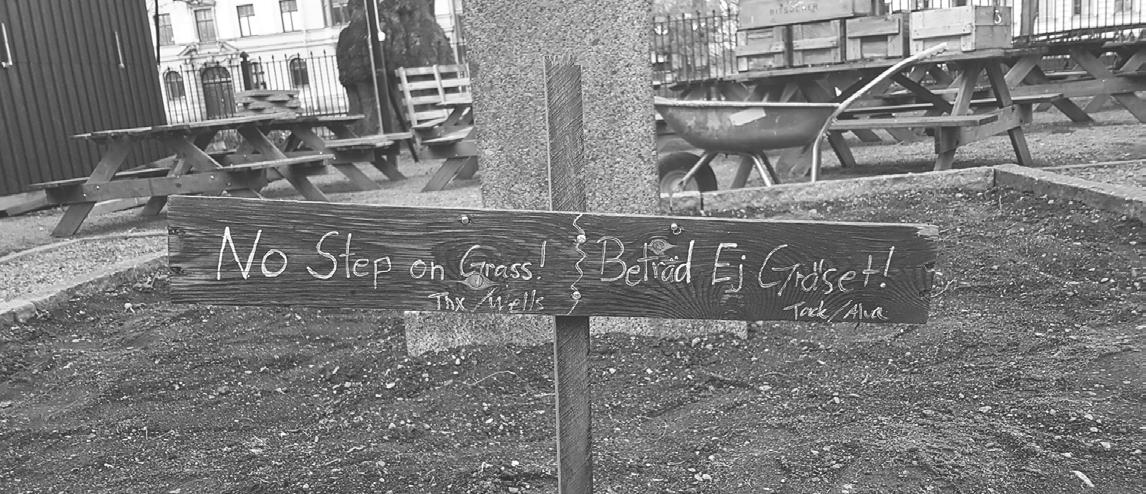 No Step on Grass!
Thx/Wells
Beträd Ej Gräset!
Tack/Alva